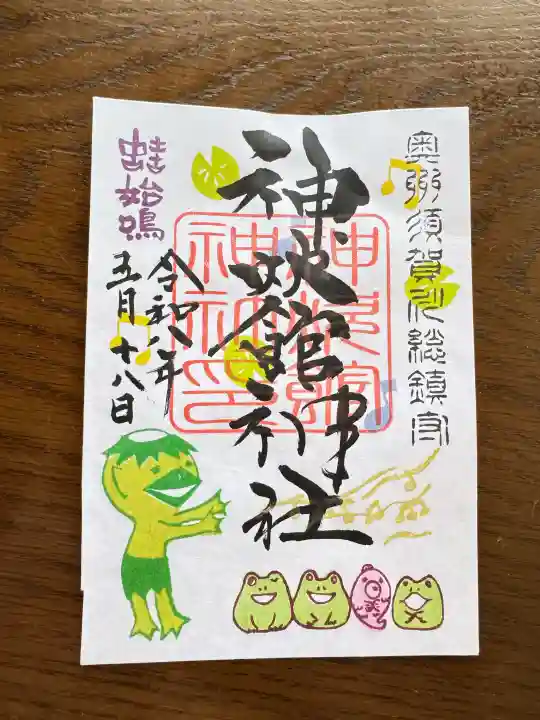 奥州須賀川総鎮守
神炊館神社
神炊館
神社印
蛙始鳴
令和八年
五月十八日